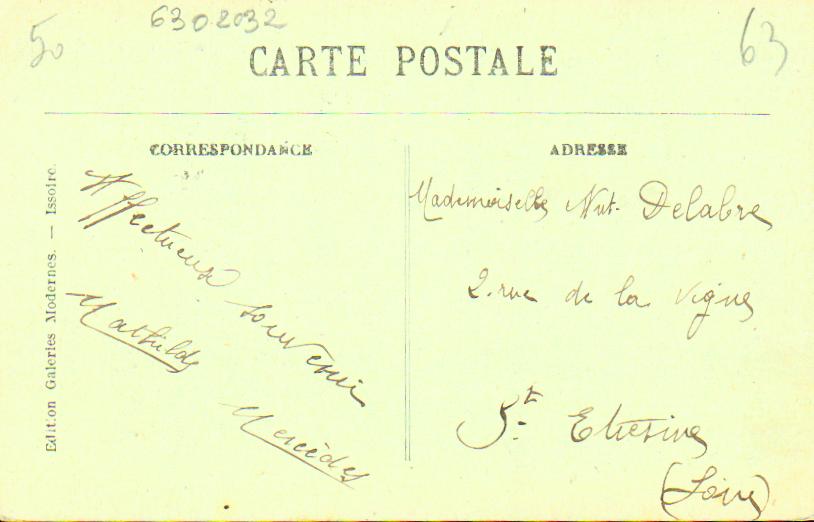 50
6302032
63
CARTE POSTALE
CORRESPONDANCE
ADRESSE
Edition Galeries Modernes. — Issoire.
Affectueux souvenir
Mathilde
Mercédes
Mademoiselle Delabre
2. rue de la Vigne
St. Etienne
(Loire)